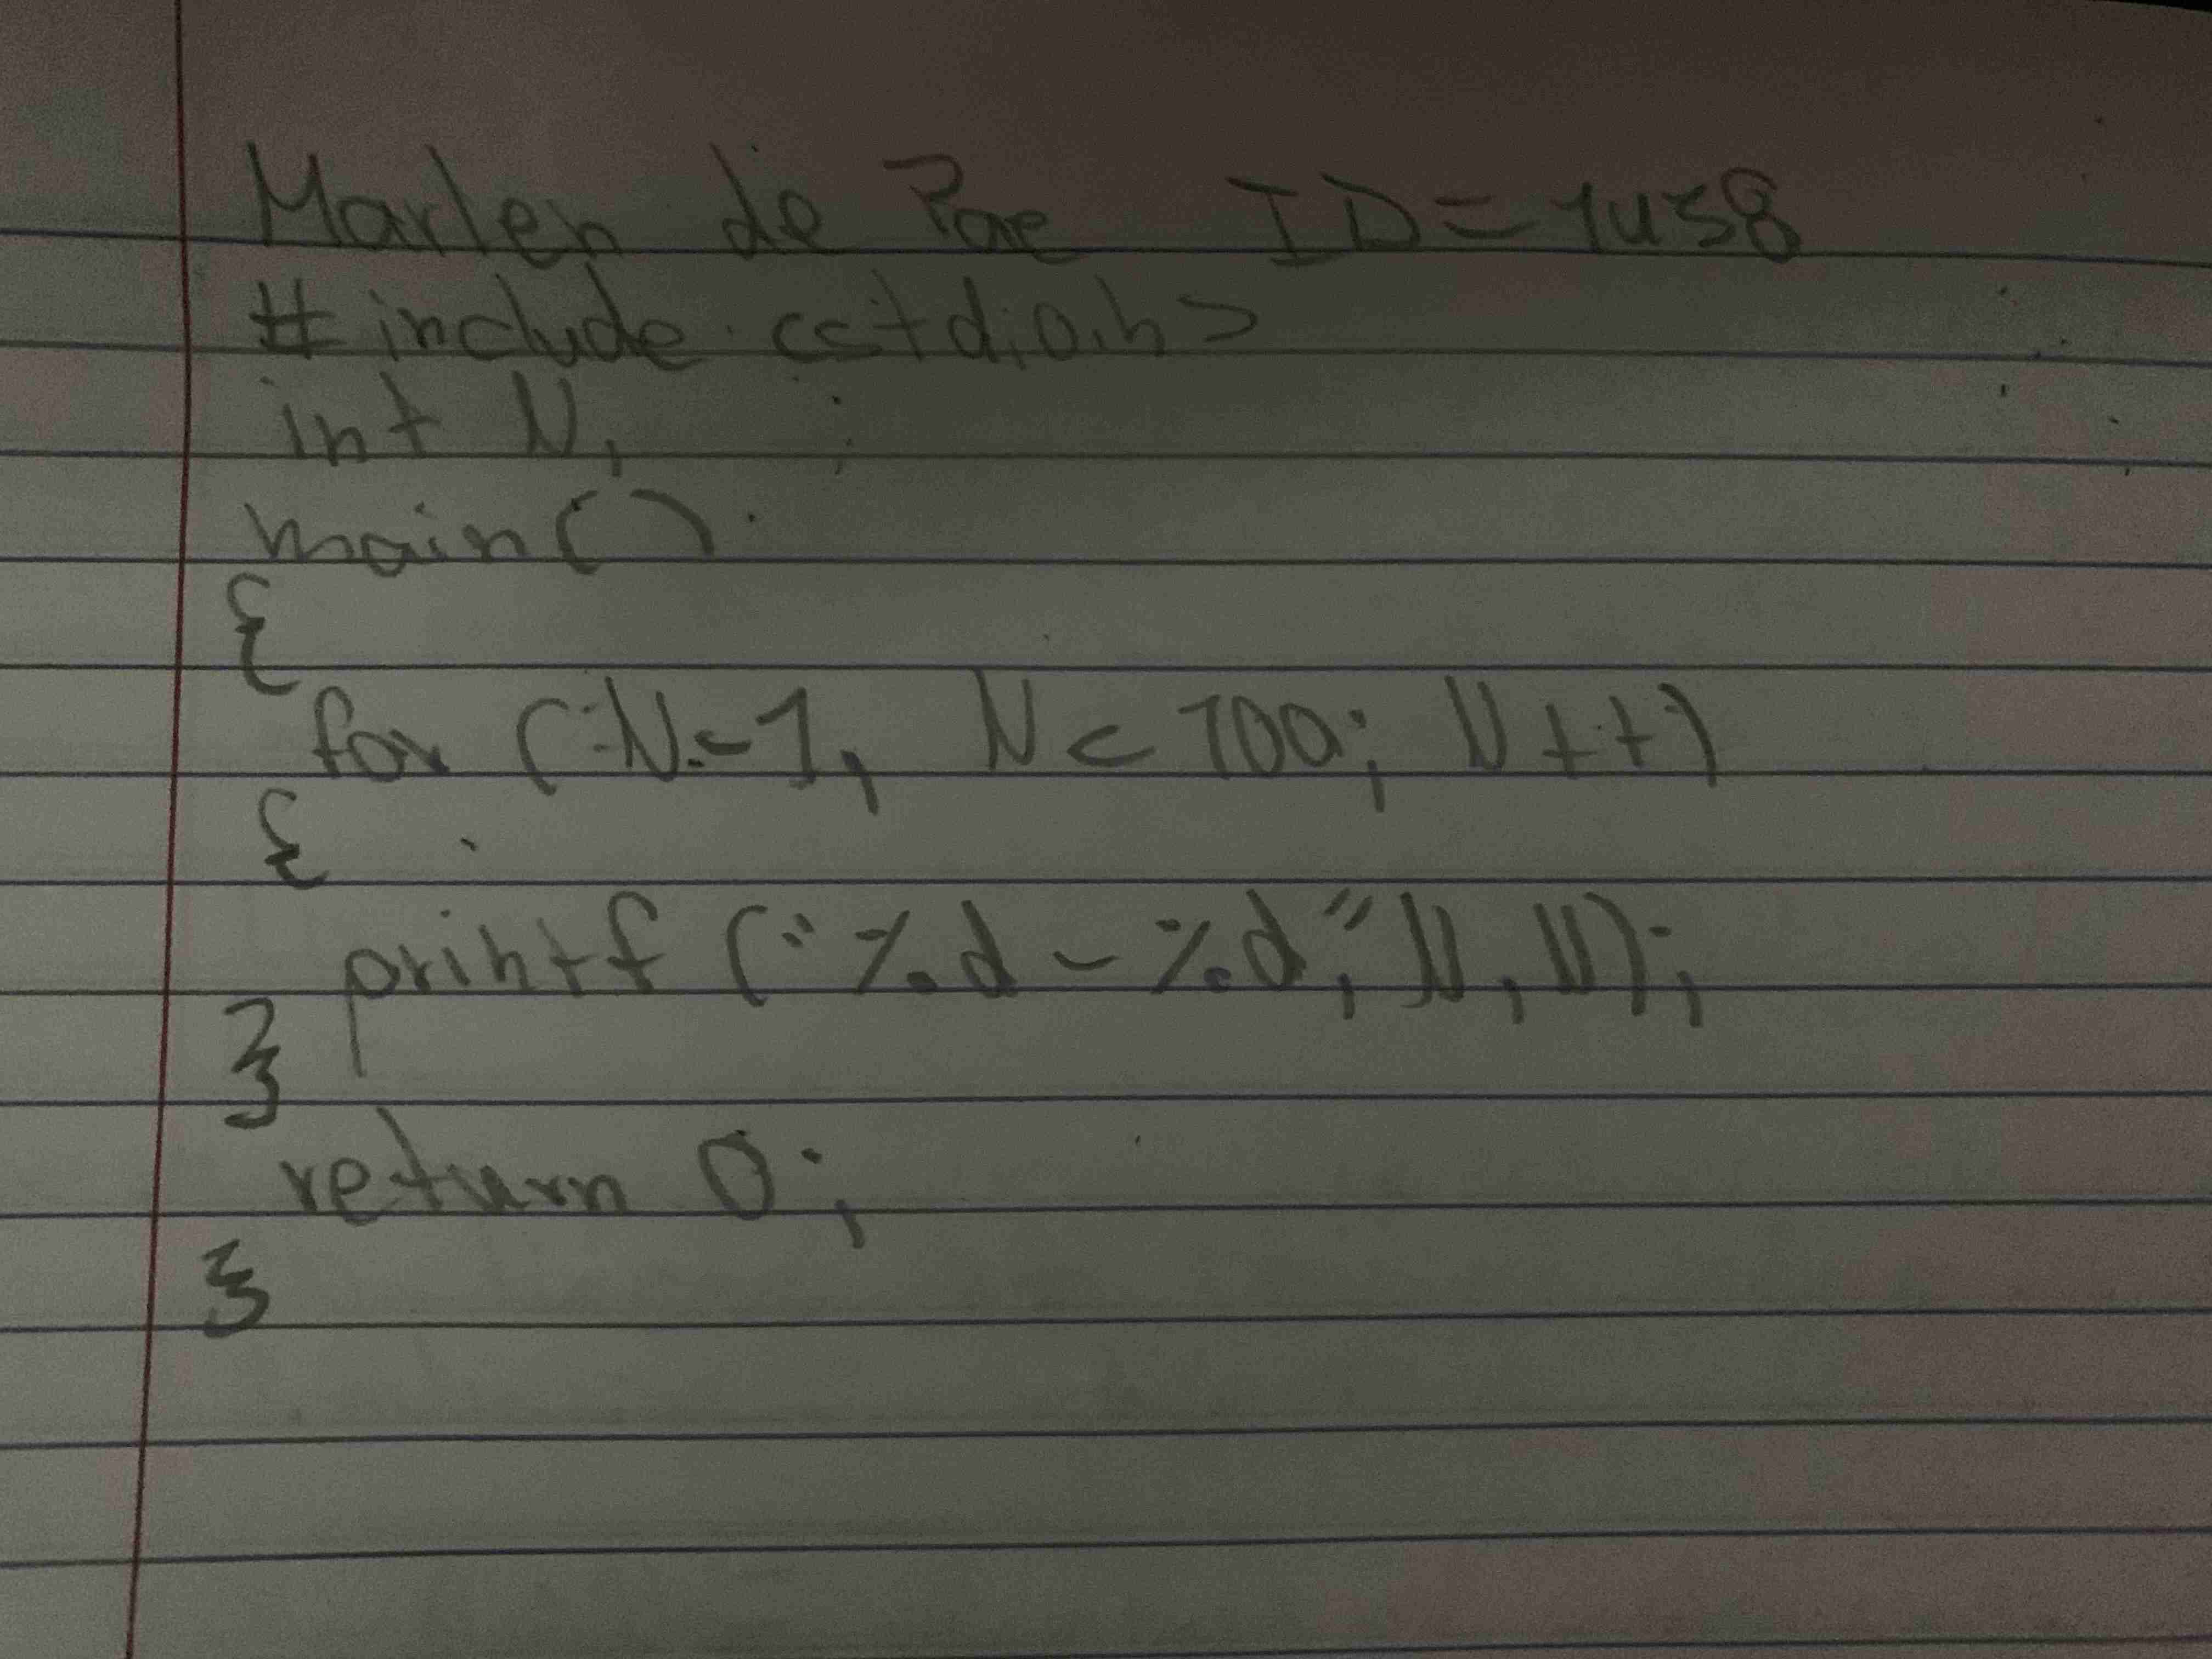 Marlen de Pae ID=1438
#include <stdio.h>
int N,
main()
{
for (N=1, N<100; N++)
{
printf ("%d-%d", N, N);
}
return 0;
}